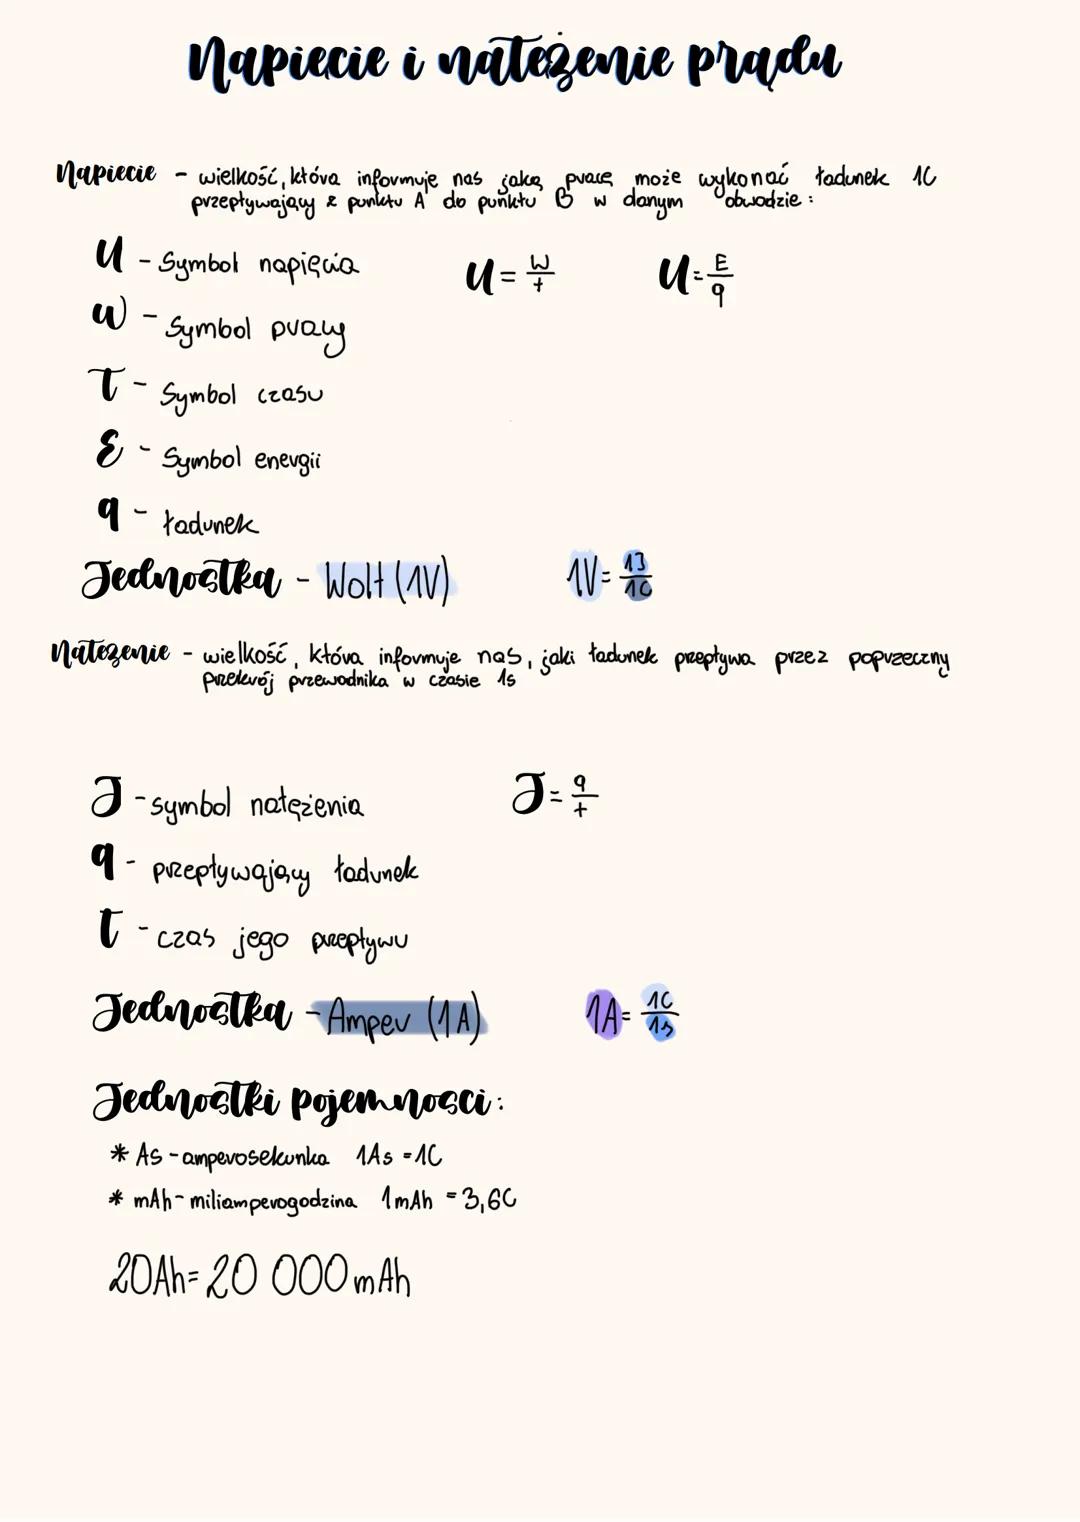 Napiecie i natężenie prądu
Napiecie - wielkość, która informuje nas jaką pracę może wykonać ładunek 1C
przepływający z punktu A do punktu B w danym obwodzie:
U - Symbol napięcia U = W/t U = E/q
W - Symbol pracy
T - Symbol czasu
E - Symbol energii
q - ładunek
Jednostka - Wolt (1V) 1V = 1J/1C
Natezenie - wielkość, która informuje nas, jaki ładunek przepływa przez poprzeczny
przekrój przewodnika w czasie 1s
J - symbol natężenia J = q/t
q - przepływający ładunek
t - czas jego przepływu
Jednostka - Amper (1A) 1A = 1C/1s
Jednostki pojemnosci:
* As - amperosekunka 1As = 1C
* mAh - miliamperogodzina 1mAh = 3,6C
20Ah = 20 000 mAh